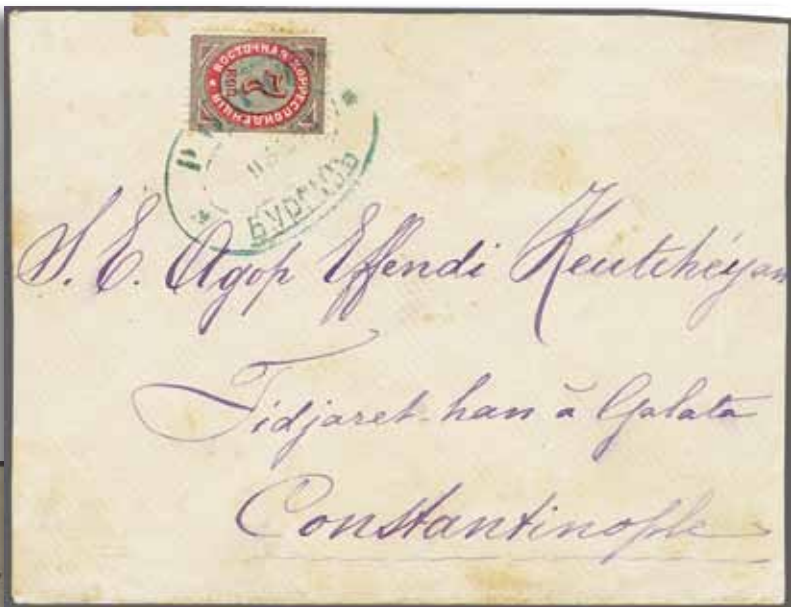 ВОСТОЧНАЯ КОРРЕСПОНДЕНЦІЯ
7
КОП
БУРГАСЪ
S. E. Agop Effendi Keutchéyan
Tidjaret-han à Galata
Constantinople